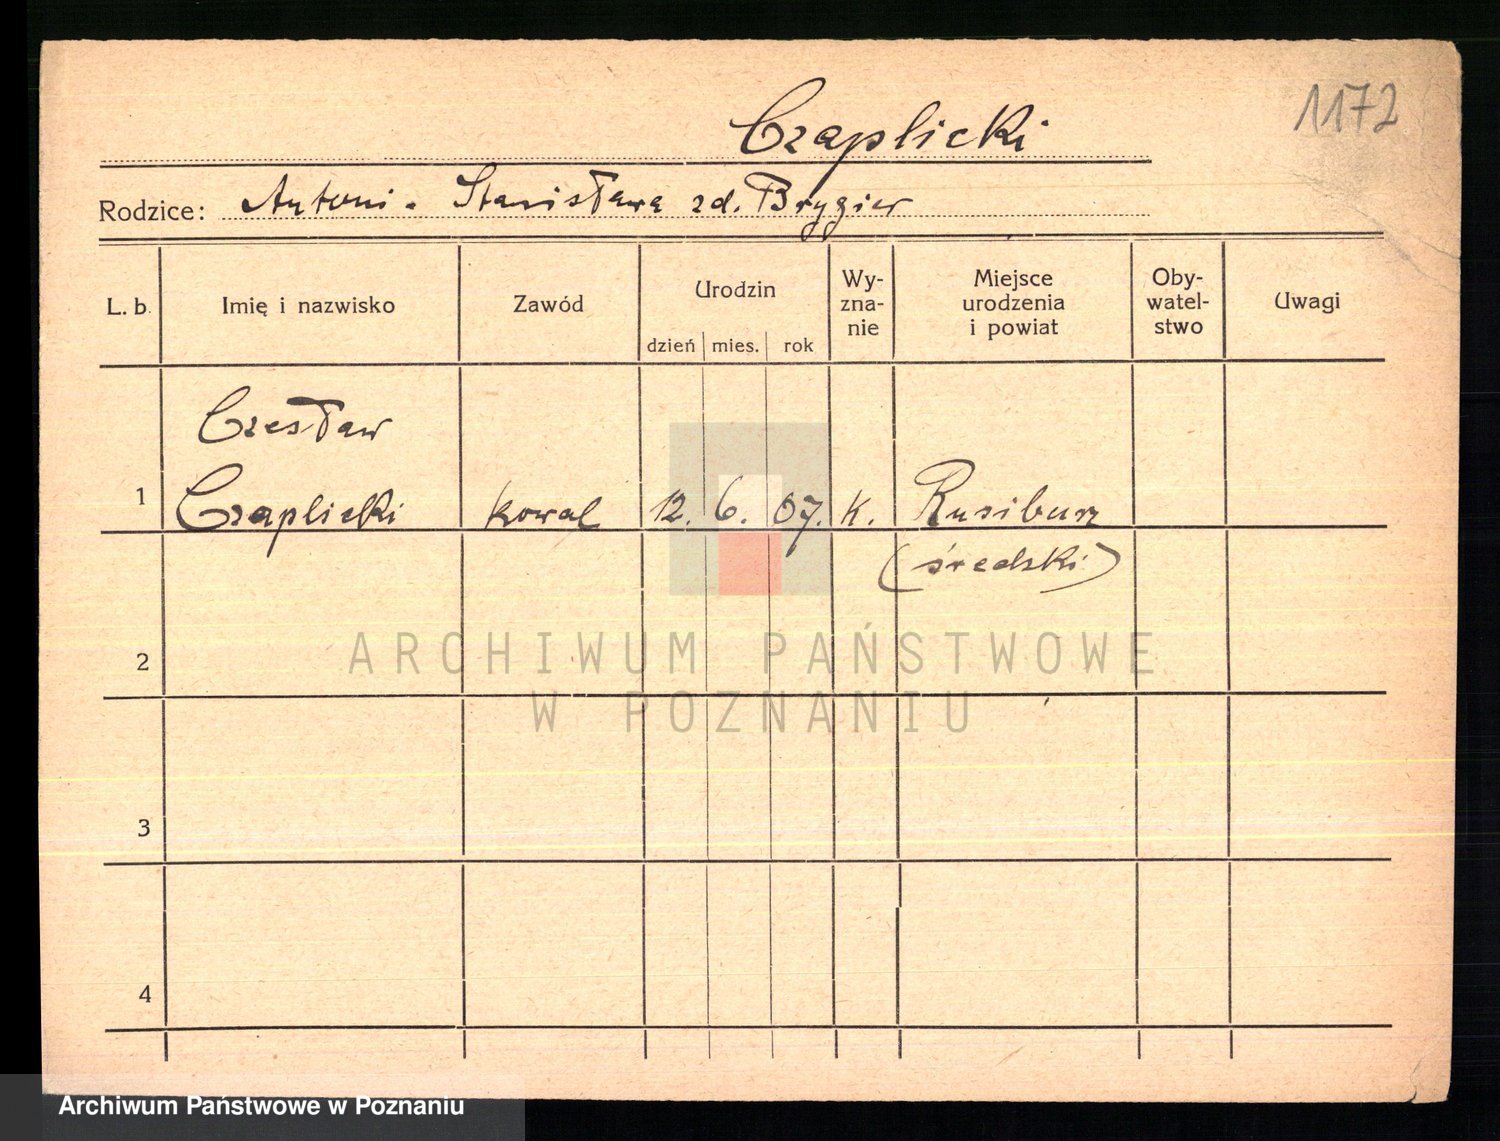 1172
Czaplicki
Rodzice: Antoni - Stanisława zd. Brygier
L. b. Imię i nazwisko Zawód Urodzin Wy-
zna-
nie Miejsce
urodzenia
i powiat Oby-
watel-
stwo Uwagi
dzień mies. rok
Czesław
1 Czaplicki kowal 12. 6. 07. k. Rusiborz
(średski)
2
ARCHIWUM PAŃSTWOWE
W POZNANIU
3
4
Archiwum Państwowe w Poznaniu